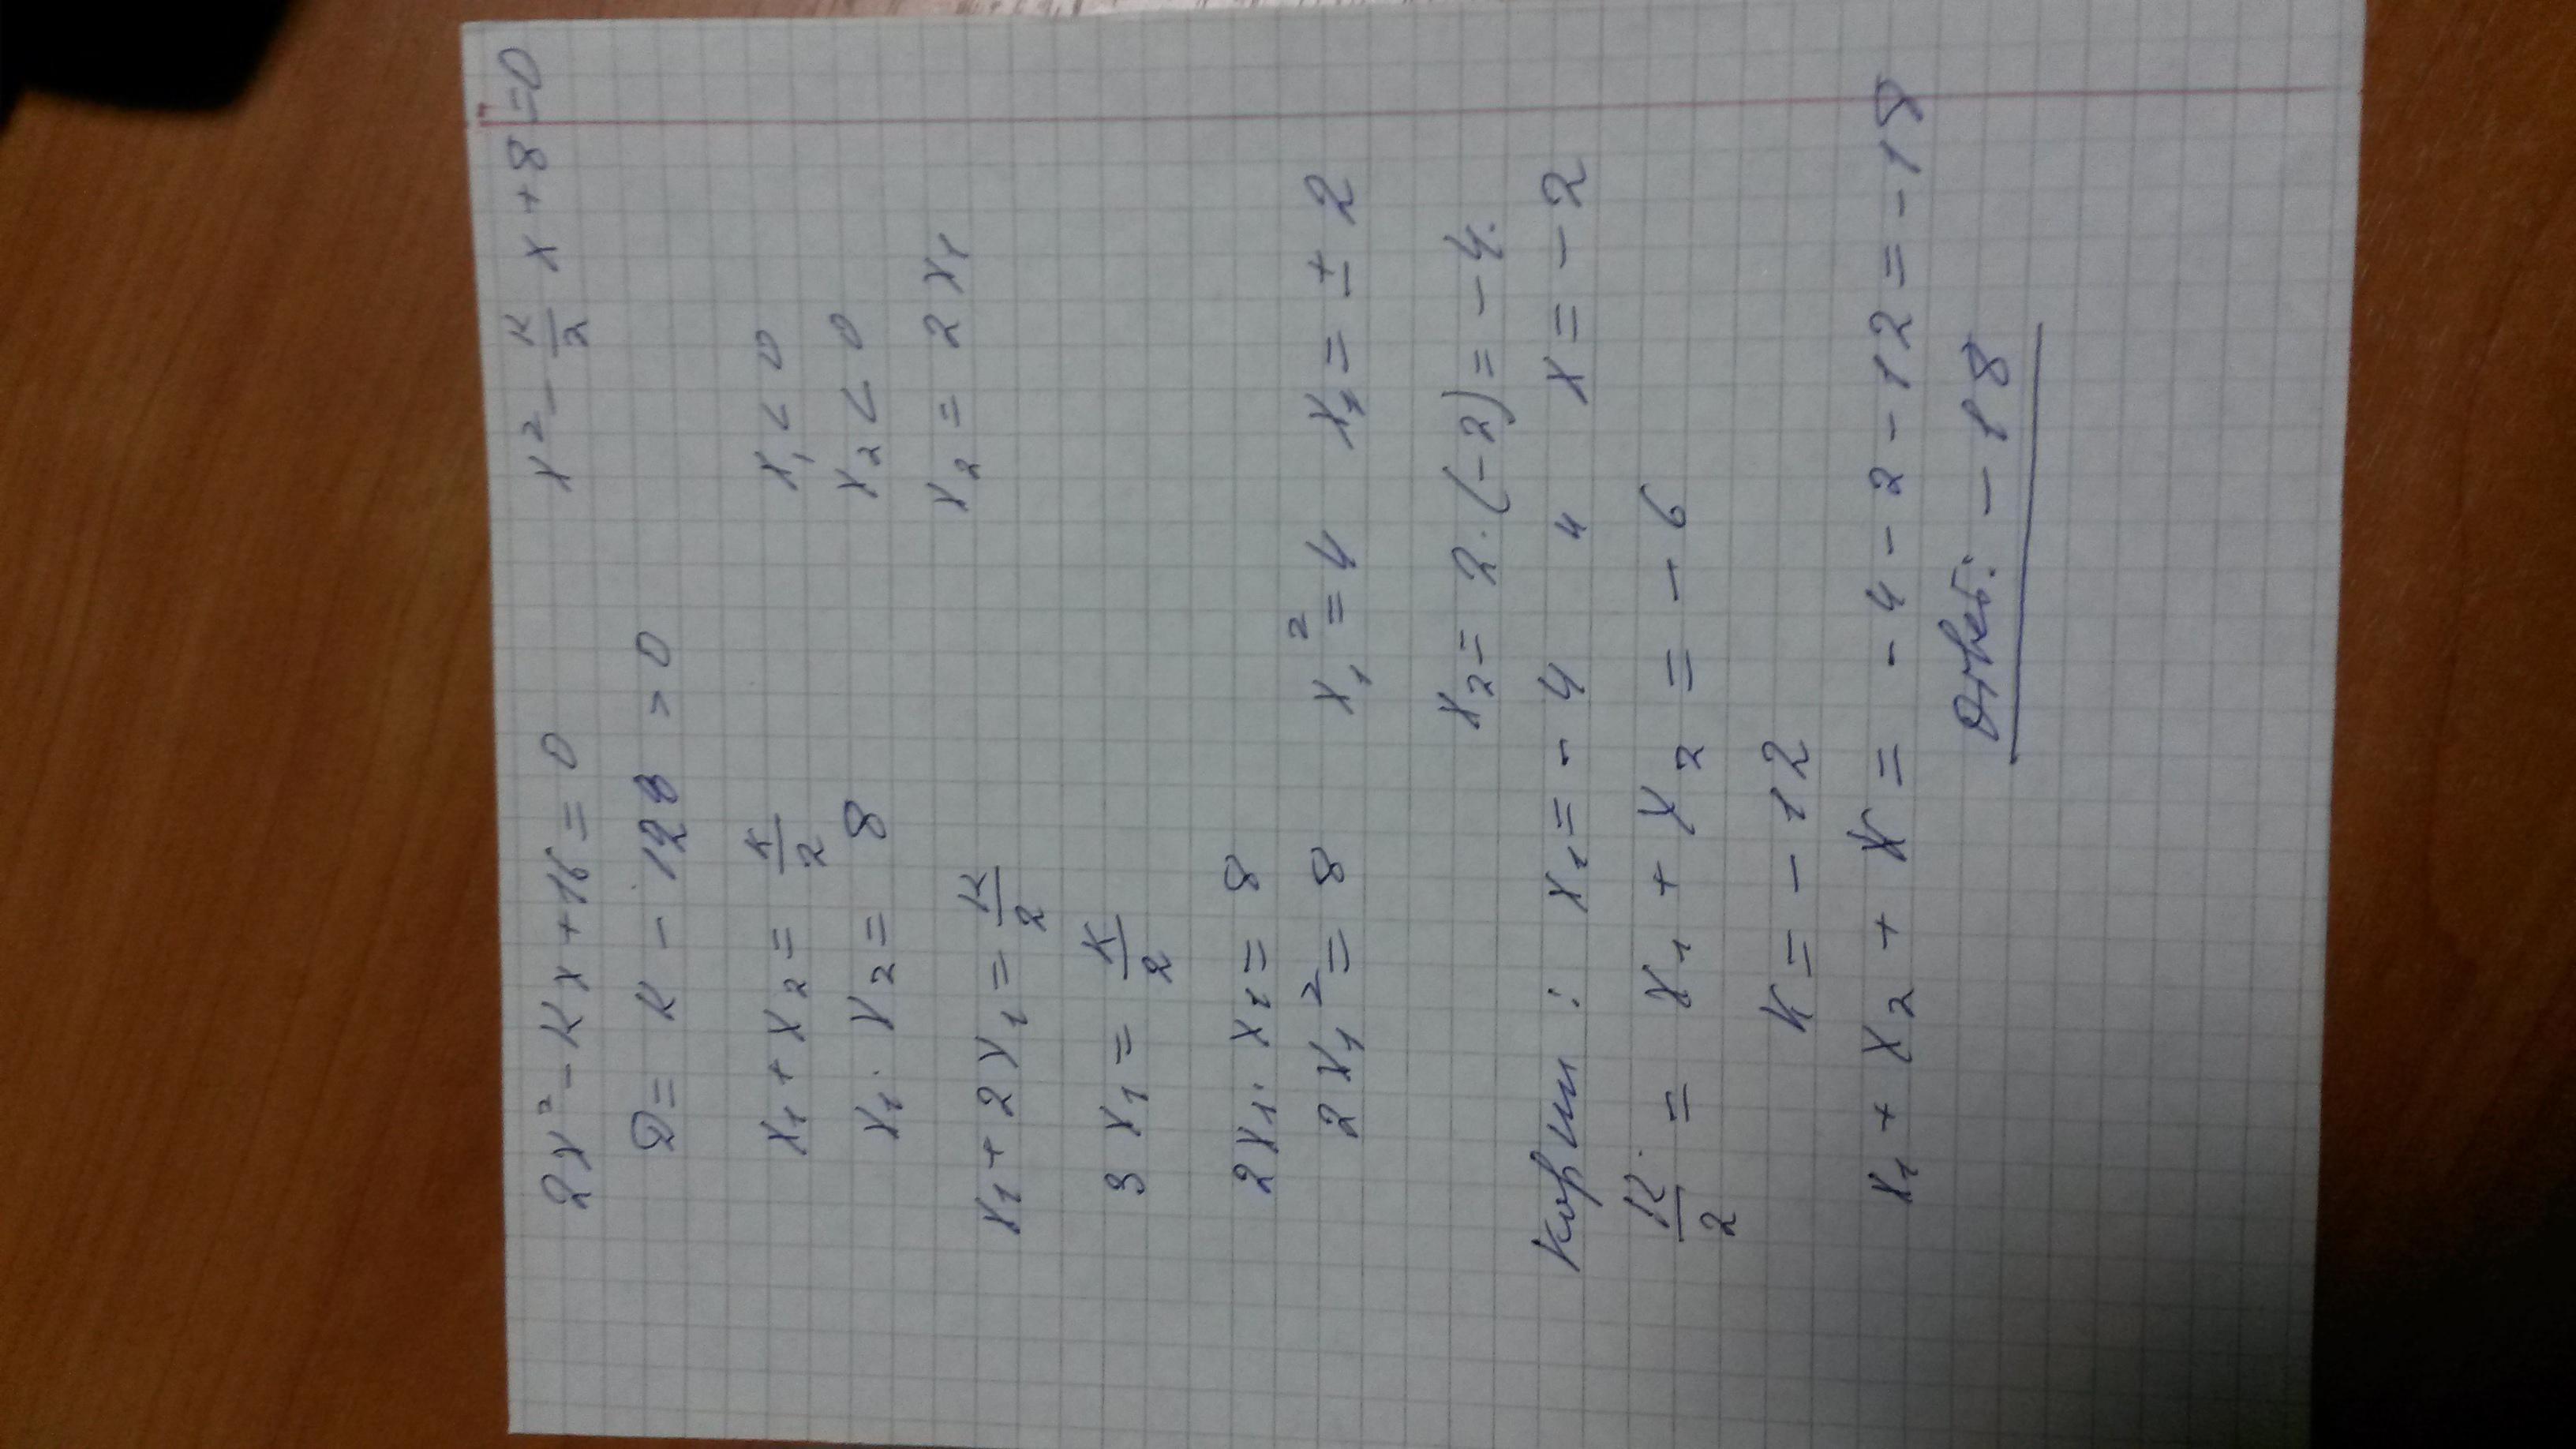 2x² - Kx + 16 = 0    x² - K/2 x + 8 = 0
D = K - 128 > 0
x₁ + x₂ = K/2    x₁ < 0
x₁ · x₂ = 8    x₂ < 0
x₂ = 2x₁
x₁ + 2x₁ = K/2
3x₁ = K/2
2x₁ · x₁ = 8
2x₁² = 8    x₁² = 4    x₁ = ± 2
x₂ = 2 · (-2) = -4.
Корни : x₁ = -4 и x = -2
K/2 = x₁ + x₂ = -6
K = -12
x₁ + x₂ + K = -4 - 2 - 12 = -18
Ответ: -18